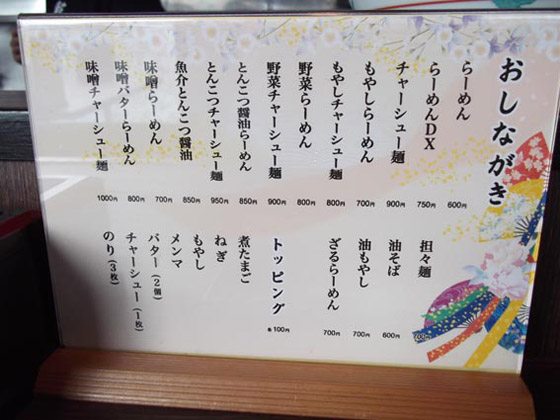 おしながき
らーめん 600円
らーめんDX 750円
チャーシュー麺 900円
もやしらーめん 700円
もやしチャーシュー麺 800円
野菜らーめん 800円
野菜チャーシュー麺 900円
とんこつ醤油らーめん 850円
とんこつチャーシュー麺 950円
魚介とんこつ醤油 850円
味噌らーめん 700円
味噌バターらーめん 800円
味噌チャーシュー麺 1000円
担々麺 700円
油そば 600円
油もやし 700円
ざるらーめん 700円
トッピング 各100円
煮たまご
ねぎ
もやし
メンマ
バター(2個)
チャーシュー(1枚)
のり(3枚)